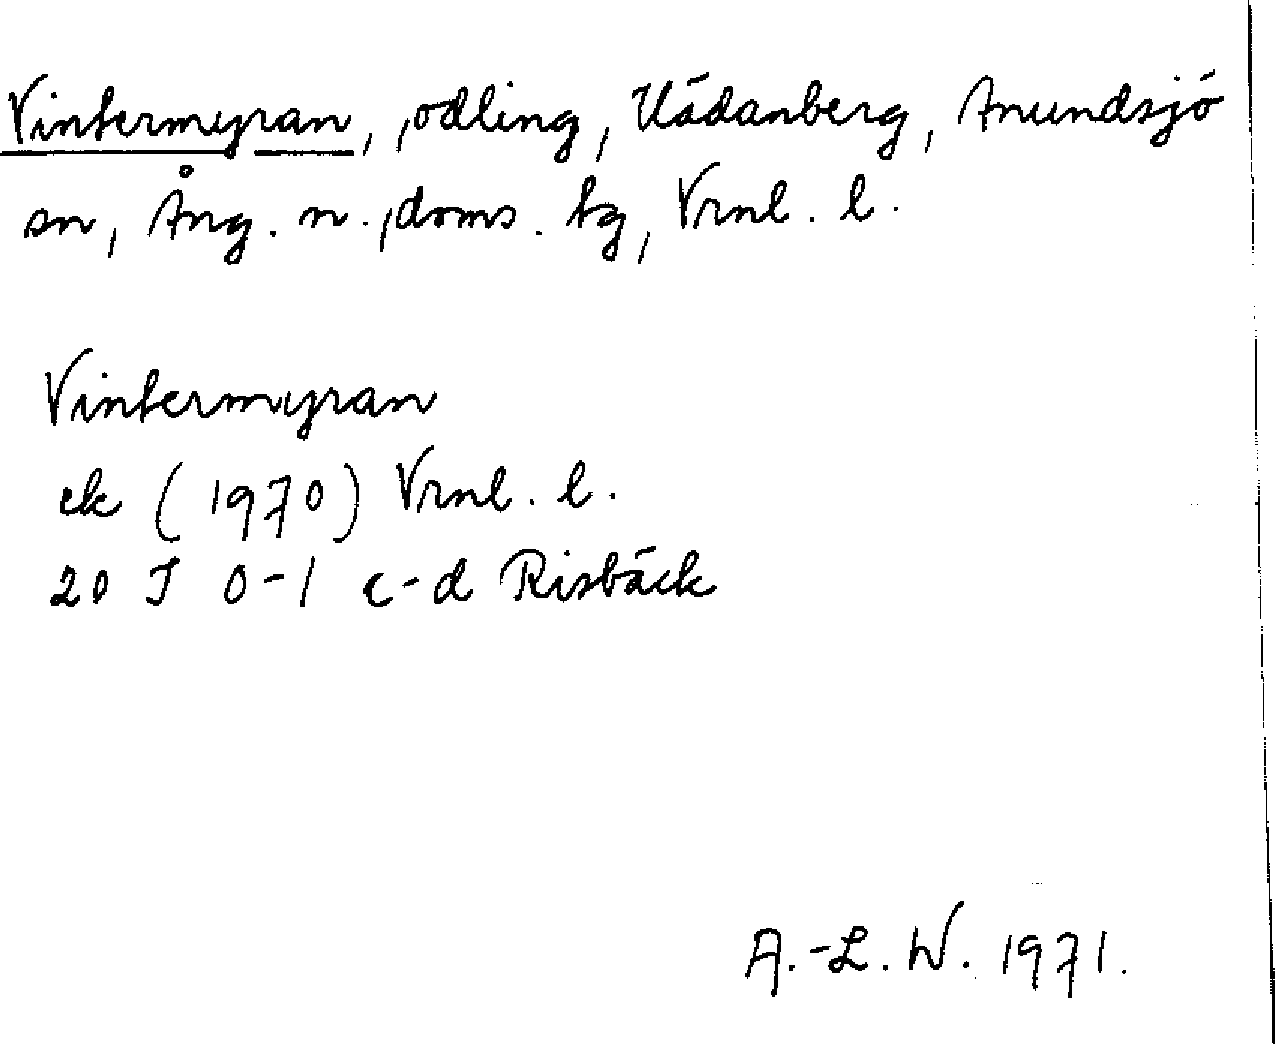 Vintermyran, odling, Kådanberg, Anundsjö
sn, Ång. n. doms. tg, Vrnl. l.
Vintermyran
ek (1970) Vrnl. l.
20 J 0-1 c-d Risbäck
A.-L. W. 1971.